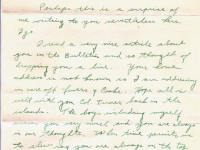 Perhaps this is a surprise of
me writing to you nevertheless here
I go.
I read a very nice article about
you in the Bulletin and so thought of
dropping you a line. Your home
address is not known so I am addressing
in care of Juers & Cooke. Hope all is
well with you Ed. Turner back in the
islands. The boys including myself
miss you very much and you are always
in our thoughts. When time permits me
to show you are always on the top